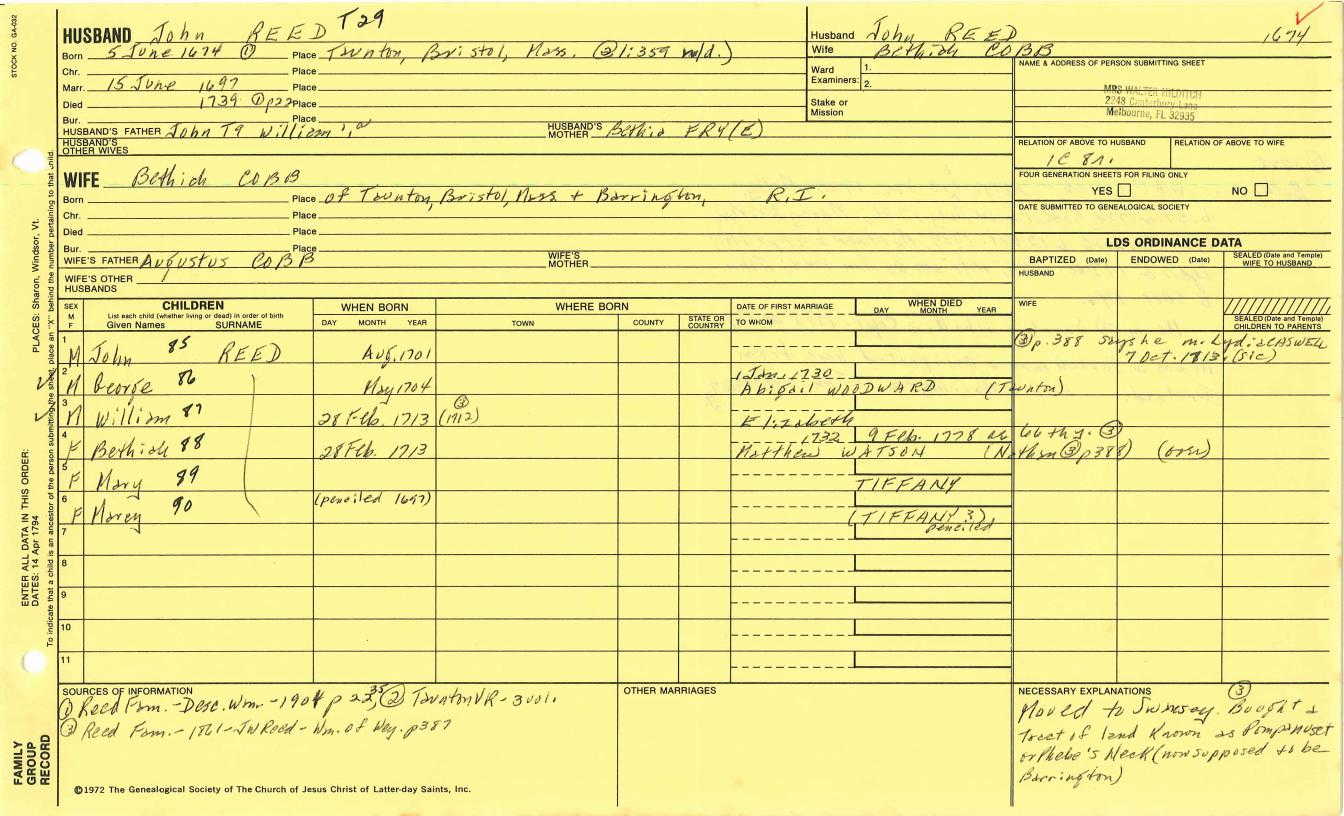 HUSBAND John REED T29
Born 5 June 1674 ① Place Taunton, Bristol, Mass. (② 1:359 m/d.)
Chr. Place
Marr. 15 June 1697 Place
Died 1739 ① p22 Place
Bur. Place
HUSBAND'S FATHER John T9 William HUSBAND'S MOTHER Bethia FRY(E)
HUSBAND'S OTHER WIVES
Husband John REED 1674
Wife Bethiah COBB
Ward Examiners: 1.
2.
Stake or Mission
NAME & ADDRESS OF PERSON SUBMITTING SHEET
MRS WALTER HILDITCH
2248 Canterbury Lane
Melbourne, FL 32935
RELATION OF ABOVE TO HUSBAND RELATION OF ABOVE TO WIFE
1C 8r.
FOUR GENERATION SHEETS FOR FILING ONLY
YES NO
DATE SUBMITTED TO GENEALOGICAL SOCIETY
WIFE Bethiah COBB
Born Place of Taunton, Bristol, Mass + Barrington, R.I.
Chr. Place
Died Place
Bur. Place
WIFE'S FATHER Augustus COBB WIFE'S MOTHER
WIFE'S OTHER HUSBANDS
LDS ORDINANCE DATA
BAPTIZED (Date) ENDOWED (Date) SEALED (Date and Temple) WIFE TO HUSBAND
HUSBAND
WIFE
SEALED (Date and Temple) CHILDREN TO PARENTS
SEX M F CHILDREN WHEN BORN WHERE BORN DATE OF FIRST MARRIAGE WHEN DIED
List each child (whether living or dead) in order of birth
Given Names SURNAME DAY MONTH YEAR TOWN COUNTY STATE OR COUNTRY TO WHOM DAY MONTH YEAR
1 M John 85 REED Aug. 1701 ③ p. 388 says he m. Lydia CASWELL
7 Oct. 1813. (sic)
2 M George 86 May 1704 1 Jan. 1730
Abigail WOODWARD (Taunton)
3 M William 87 28 Feb. 1713 (1712) ③ Elizabeth
4 F Bethiah 88 28 Feb. 1713 1732 9 Feb. 1778 ae 66th y. ③
Matthew WATSON (Nathan ③ p388) (over)
5 F Mary 89 TIFFANY
6 F Marcy 90 (penciled 1697) (TIFFANY ?)
penciled
7
8
9
10
11
SOURCES OF INFORMATION
① Reed Fam.-Desc. Wm.-1904 p 22, 35 ② Taunton VR - 3 vol.
③ Reed Fam. - 1861 - JW Reed - Wm. of Wey. p387
OTHER MARRIAGES
NECESSARY EXPLANATIONS ③
Moved to Swansey. Bought a
tract of land known as Pompanuset
or Phebe's Neck (now supposed to be
Barrington)
©1972 The Genealogical Society of The Church of Jesus Christ of Latter-day Saints, Inc.
STOCK NO. GA-032
PLACES: Sharon, Windsor, Vt.
ENTER ALL DATA IN THIS ORDER:
DATES: 14 Apr 1794
To indicate that a child is an ancestor of the person submitting the sheet, place an "X" behind the number pertaining to that child.
FAMILY GROUP RECORD